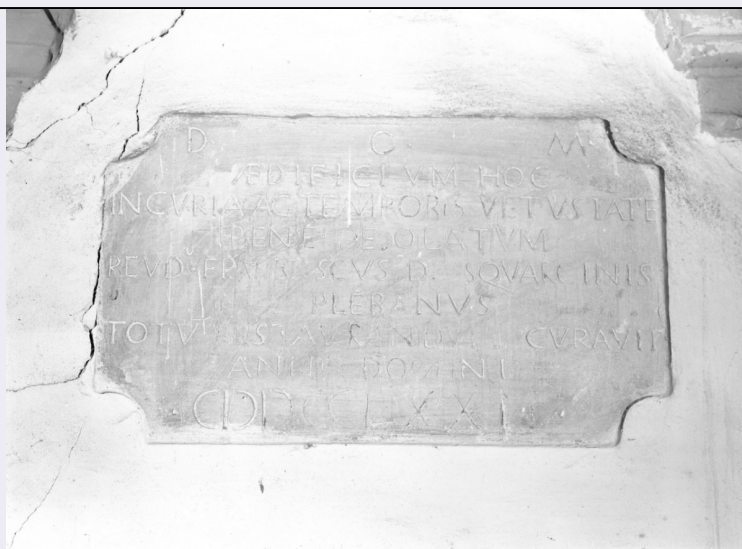 D C M
ÆDIFICIVM HOC
INCVRIA AC TEMPORIS VETVSTATE
PENE DESOLATVM
REVD FRANCISCVS D. SQVARCINIS
PLEBANVS
TOTV RESTAVRANDV CVRAVIT
ANNO DOMINI